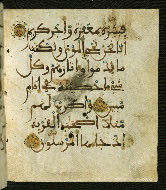 فبشره بمغفرة وأجر كريم
إنا نحن نحي الموتى ونكتب
ما قدموا وآثارهم وكل
شيء أحصيناه في إمام
مبين واضرب لهم
مثلا أصحاب القرية
إذ جاءها المرسلون